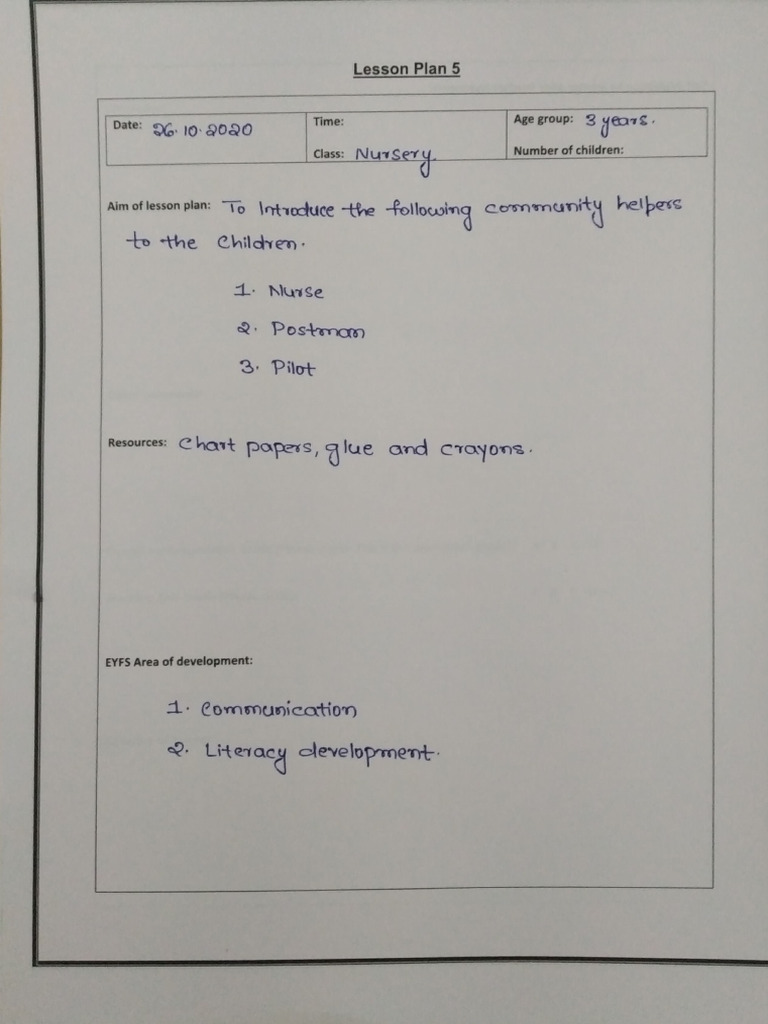 Lesson Plan 5
Date: 26.10.2020
Time:
Class: Nursery
Age group: 3 years.
Number of children:
Aim of lesson plan: To Introduce the following community helpers
to the Children.
1. Nurse
2. Postman
3. Pilot
Resources: Chart papers, glue and crayons.
EYFS Area of development:
1. Communication
2. Literacy development.